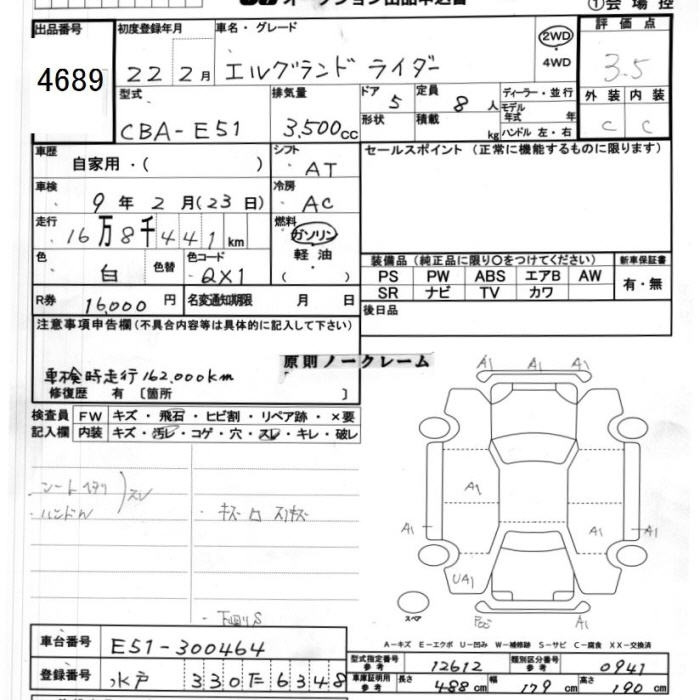 オークション出品申込書
①会場控
出品番号 初度登録年月 車名・グレード 評価点
4689 22 2月 エルグランド ライダー 2WD 3.5
4WD
外装 内装
C C
型式 排気量 ドア 5 定員 8人 ディーラー・並行
モデル年式 年
CBA-E51 3,500cc 形状 積載 kg ハンドル 左・右
車歴 自家用・( ) シフト AT セールスポイント(正常に機能するものに限ります)
車検 9年2月(23日) 冷房 AC
走行 16万8千441km 燃料 ガソリン
軽油
( )
色 白 色替 色コード QX1
装備品(純正品に限り○をつけてください) 新車保証書
PS PW ABS エアB AW 有・無
SR ナビ TV カワ
R券 16,000円 名変通知期限 月 日 後日品
注意事項申告欄(不具合内容等は具体的に記入して下さい)
原則ノークレーム
車検時走行162,000km
修復歴 有 〔箇所 〕
検査員 FW キズ・飛石・ヒビ割・リペア跡・×要
記入欄 内装 キズ・汚レ・コゲ・穴・スレ・キレ・破レ
A1 A1 A1
シートヘタリ
ハンドル
スレ
A1
A1 A1 A1
UA1
スペア A1
下回りS
A-キズ E-エクボ U-凹み W-補修跡 S-サビ C-腐食 XX-交換済
車台番号 E51-300464
型式指定番号 参考 12612 類別区分番号 参考 0941
登録番号 水戸 330 モ 6348
車庫証明用 参考 長さ 488cm 幅 179cm 高さ 190cm